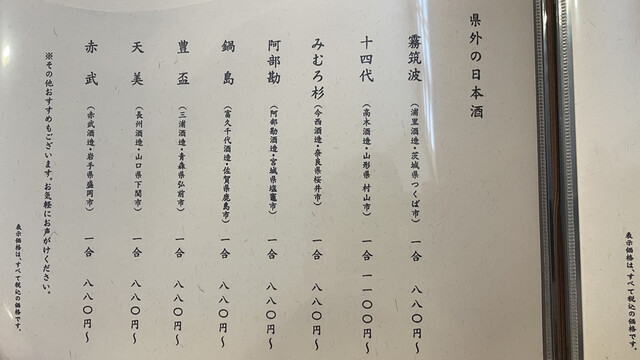 県外の日本酒
霧筑波（浦里酒造・茨城県つくば市）一合 八八〇円〜
十四代（高木酒造・山形県村山市）一合 一一〇〇円〜
みむろ杉（今西酒造・奈良県桜井市）一合 八八〇円〜
阿部勘（阿部勘酒造・宮城県塩竈市）一合 八八〇円〜
鍋島（富久千代酒造・佐賀県鹿島市）一合 八八〇円〜
豊盃（三浦酒造・青森県弘前市）一合 八八〇円〜
天美（長州酒造・山口県下関市）一合 八八〇円〜
赤武（赤武酒造・岩手県盛岡市）一合 八八〇円〜
※その他おすすめもございます。お気軽にお声がけください。
表示価格は、すべて税込の価格です。
表示価格は、すべて税込の価格です。